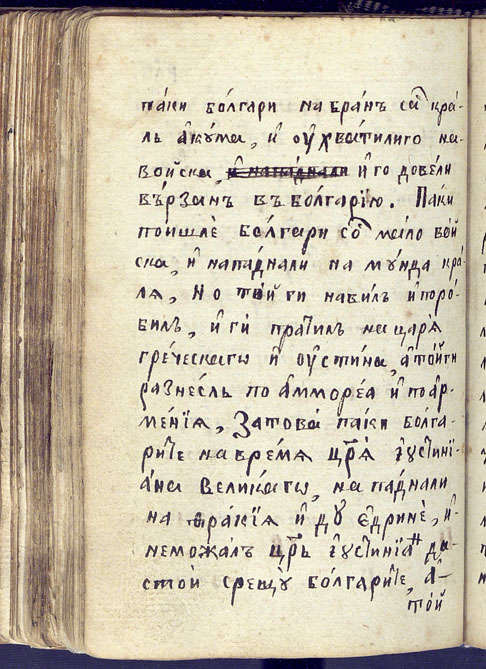 паки болгари на бранъ са̑ кра́-
ль а҆кума, и҆ оу҆хватилиго на
войска, и҆ нападнали и҆ го довели
вѣрзанъ въ болгарїю. Паки
поишлѐ болгари со̑ мало вой
ска, и҆ нападнали на му́нда кра́
ля, Но то́й ги навилъ и҆поро́-
билъ, и҆ ги пратилъ на царѧ
греческагѡ и҆ оу҆стина, а҆то́йги
разне́слъ по а҆мморе́а и҆ по а҆р-
ме́нїѧ, Затова̀ паки болга-
рите на вре́мѧ цр҃ѧ і҆устїнї-
а́на великагѡ, нападнали
на ѳра́кїѧ и҆ дꙋ є҆дринѐ, и҆-
неможалъ цр҃ь і҆устїнїанъ да-
стой срещꙋ болгарите, а҆-
то́й